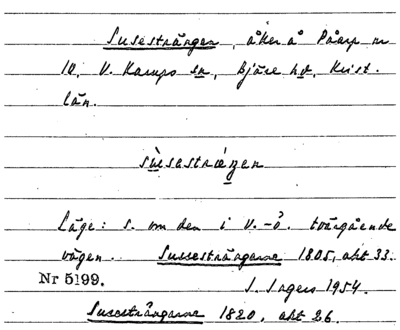 Susesträngen, åker å Påarp nr
10, V. Karups sn, Bjäre hd, Krist.
län.
sùsestræŋen
Läge: s. om den i v.-ö. tvärgående
vägen. Sussesträngarne 1805, akt 33.
Nr 5199. I. Ingers 1954.
Susesträngarne 1820, akt 26.